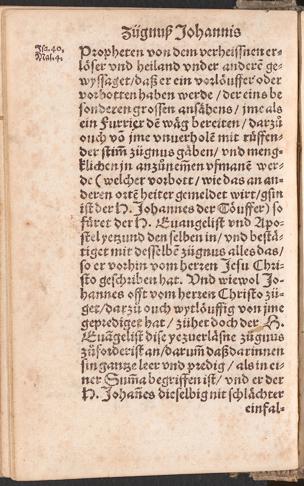 Zügnuß Johannis
Jsa. 40.
Mal. 4.
Propheten von dem verheissnen er-
löser vnd heiland vnder anderē ge-
wyssaget/ daß er ein vorlöuffer oder
vorbotten haben werde/ der eins be
sonderen grossen ansähens/ jme als
ein Furrier dē wäg bereiten/ darzů
ouch vō jme vnuerholē mit růffen-
der stim̄ zügnus gäben/ vnd meng-
klichen jn anzůnemen vfmanē wer-
de (welcher vorbott/ wie das an an-
deren ortē heiter gemeldet wirt/ gsin
ist der H. Johannes der Töuffer) so
füret der H. Euangelist vnd Apo-
stel yetzund den selben in/ vnd bestä-
tiget mit desselbē zügnus alles das/
so er vorhin vom herren Jesu Chri-
sto geschriben hat. Vnd wiewol Jo-
hannes offt vom herren Christo zü-
get/ darzů ouch wytlöuffig von jme
geprediget hat/ zühet doch der H.
Euāgelist dise yezuerläsne zügnus
zůforderist an/ darum̄ daß darinnen
sin gantze leer vnd predig/ als in ei-
ner Sum̄a begriffen ist/ vnd er der
H. Johan̄es dieselbig nit schlächter
einfal-